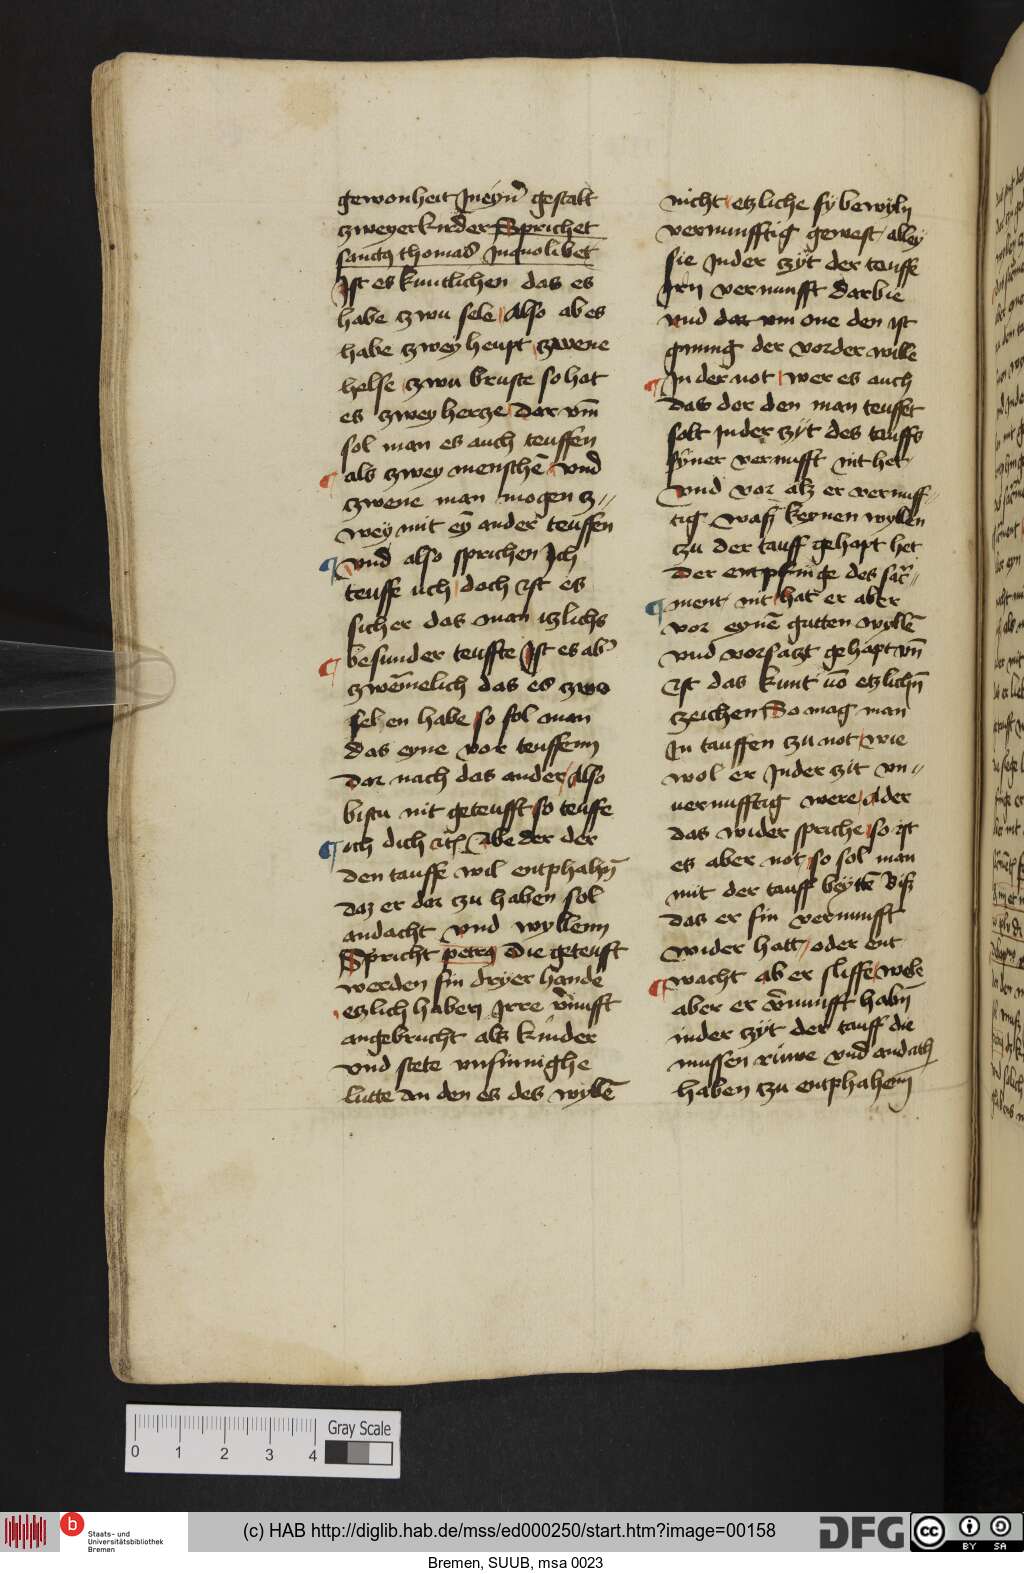 gewonheit Ineyn̄ gestalt
czweyer kinder Sprichet
sanctꝯ thomas In quolibet
Ist es kuntlichen das es
habe czwu sele Also ab es
habe czwey heupt czwene
helse czwu bruste so hat
es czwey hercze Dar vm̄
sol man es auch teuffen
als czwey menschē vnd
czwene man mogen cz〃
wey mit eȳ ander teuffen
vnd also sprichen Ich
teuffe uch doch ist es
sicher das man itzlichs
besunder teuffte Ist es ab᷑
czwēmelich das es czwo
selen habe so sol man
das eyne vor teuffenn
Dar nach das ander Also
bistu nit geteufft so teuffe
ich dich Abe der der
den tauffe wil entphahn̄
daz er dar czu haben sol
andacht vnd wyllenn
Spricht petrꝯ Die geteuft
werden sin dryer hande
etzlich haben Irre v̄nufft
angebrucht als kinder
vnd stete vnsinnighe
lutte an den es des wyllē
nicht etzliche sy bewyln
vernunfftig gewest alley
sie Inder zyt der teuffe
Irn vernunfft Darbie
vnd dar vm one den ist
gnnng der vorder wille
In der not wer es auch
das der den man teuffet
solt Inder zyt des teuffs
syner vernufft nit het
vnd vor alz er vernuff〃
tig was keynen wyllen
zu der tauff gehapt het
Der entpfinge des sac̄〃
ment nit hat er aber
vor eynē gutten wyllē
vnd vorsatzt gehapt vn̄
ist das kunt vō etzlichn̄
czeichen So mag man
In tauffen czu not wie
wol er Inder zit vn〃
vernufftig were Ader
das wider spriche so ist
es aber not so sol man
mit der tauff beytē Biß
das er sin vernunfft
wider hatt oder ent
wacht ab er sliffe wele
aber er v̄nunfft habn̄
inder zyt der tauff die
mussen ruwe vnd andath
haben czu entphahenn
Gray Scale
0 1 2 3 4
Staats- und
Universitätsbibliothek
Bremen
(c) HAB http://diglib.hab.de/mss/ed000250/start.htm?image=00158
DFG
cc BY SA
Bremen, SUUB, msa 0023